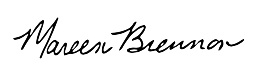 Mareen Brennan